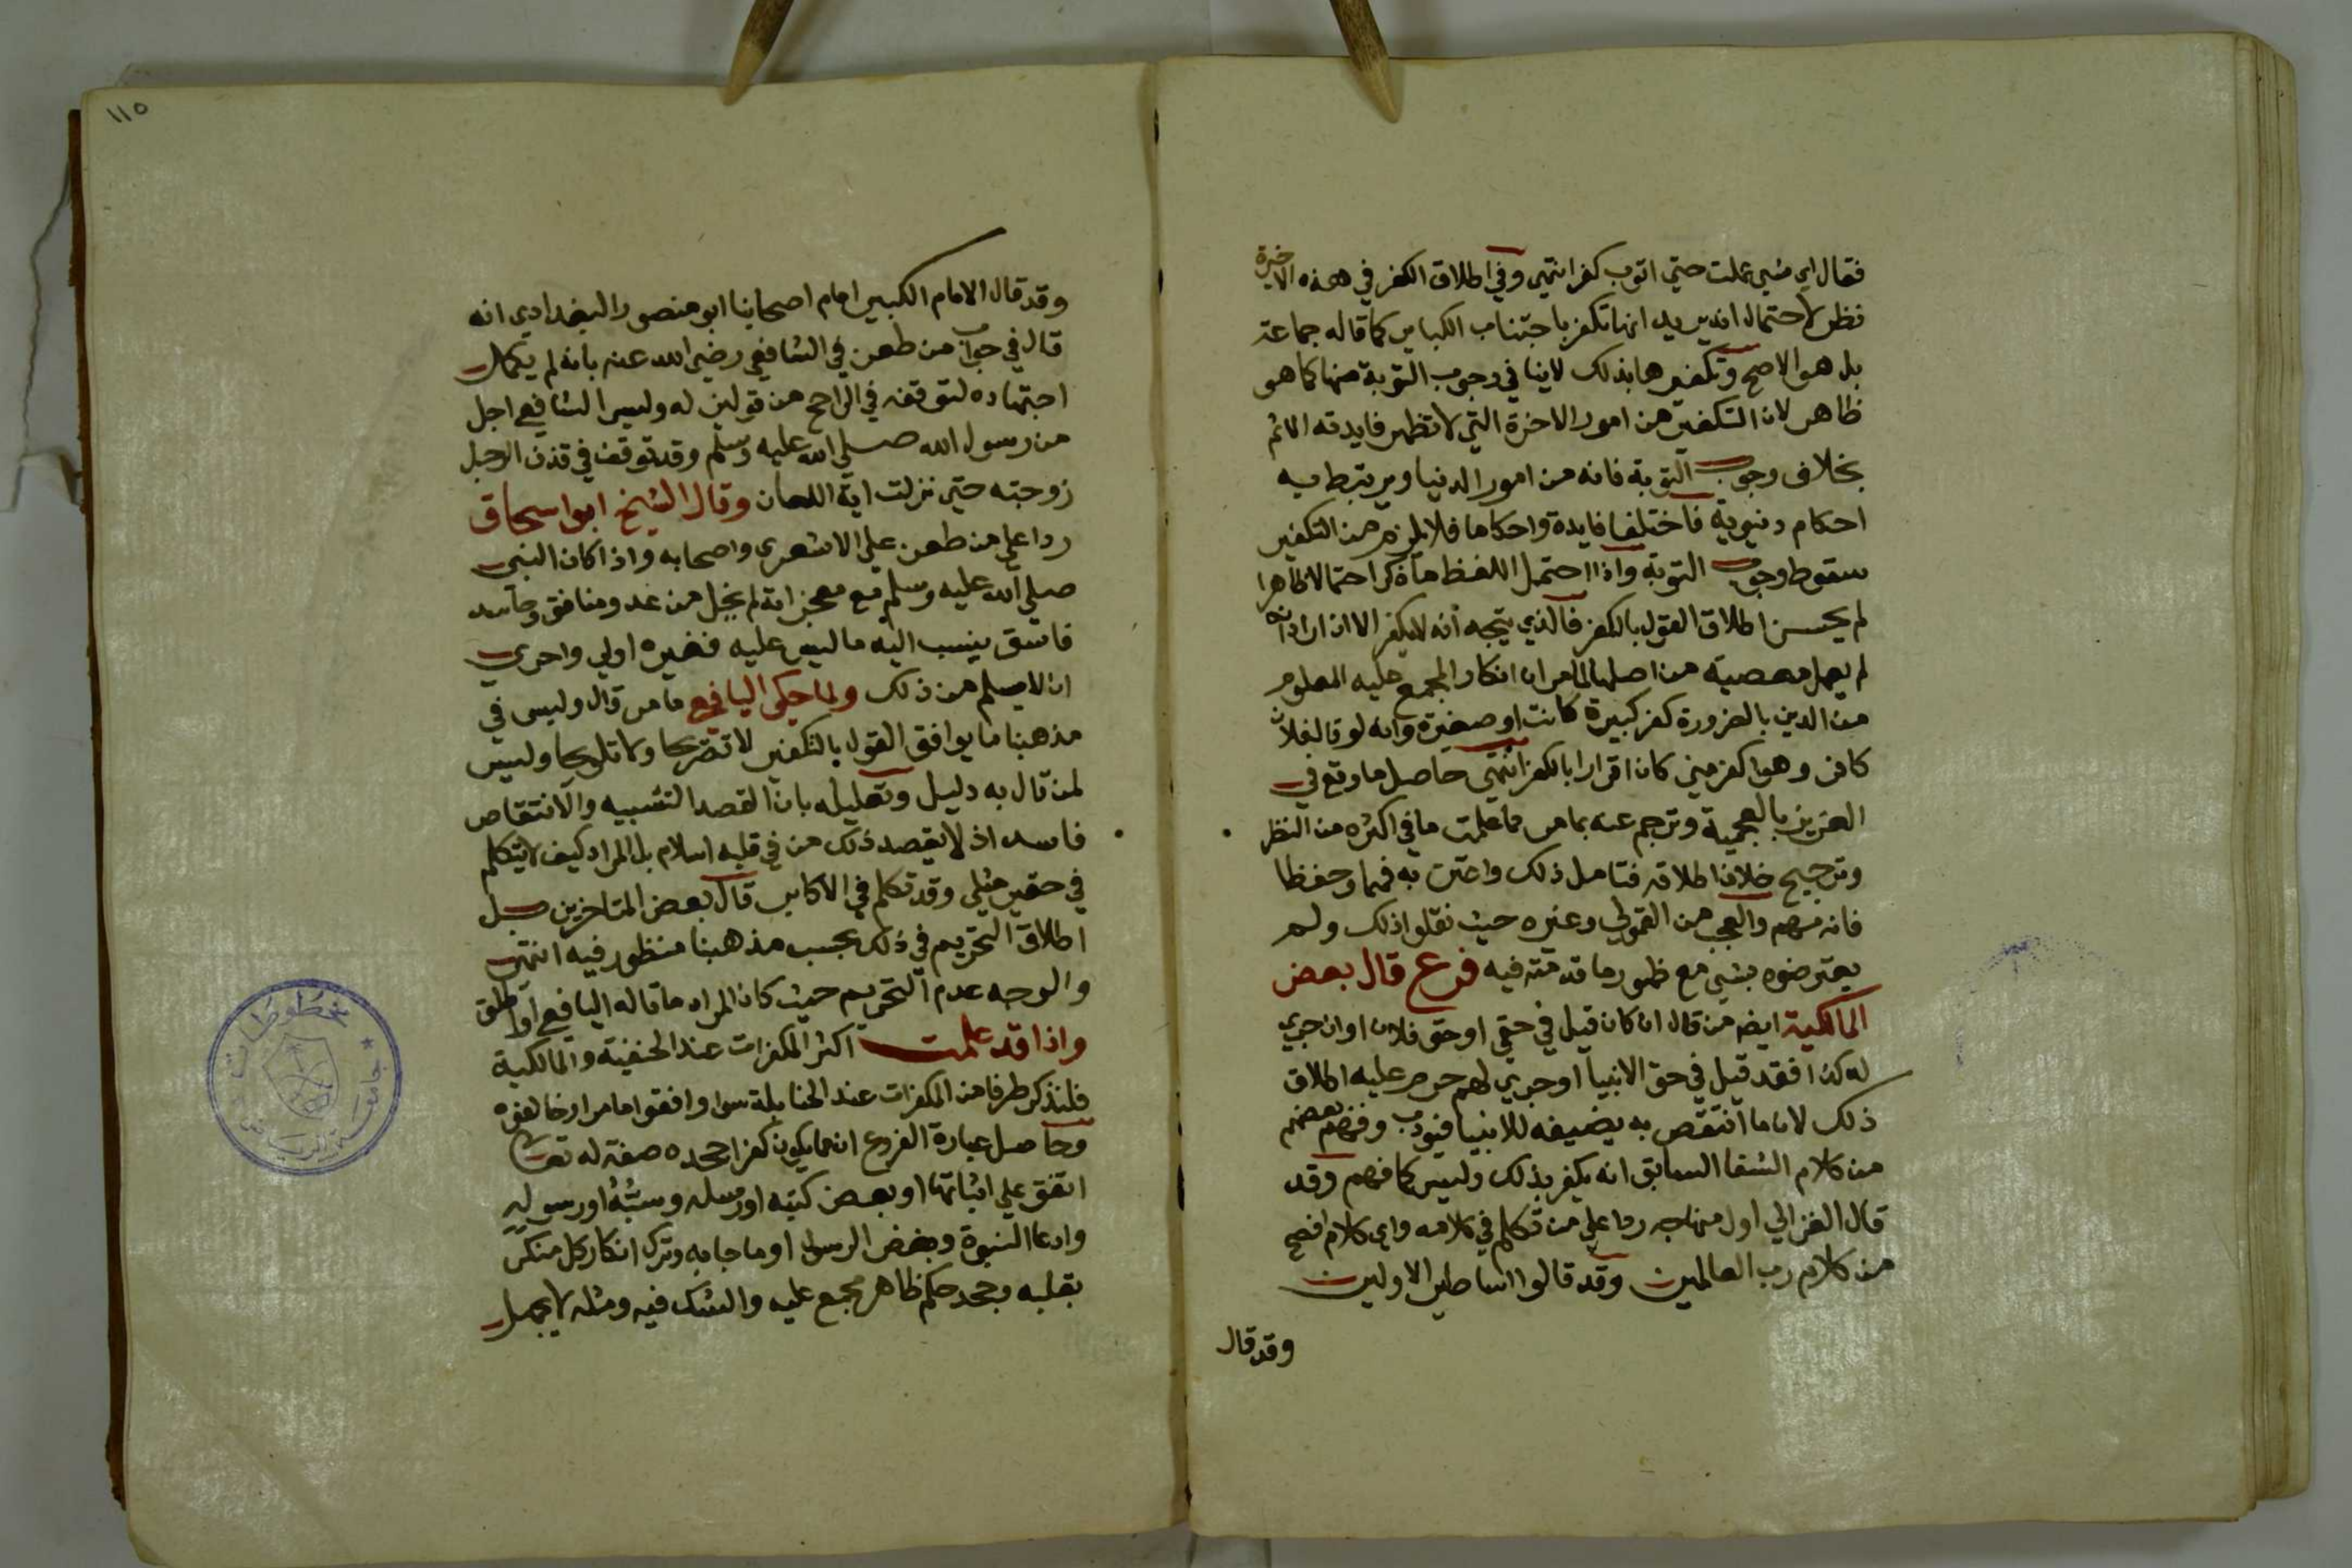 فقال اي شي عملت حتي اتوب كفر انتهي وفي اطلاق الكفر في هذه الاخيرة
نظر لاحتمال انه يريد انها تكفر باجتناب الكباير كما قاله جماعة
بل هو الاصح وتكفيرها بذلك لا ينافي وجوب التوبة منها كما هو
ظاهر لان التكفير من امور الاخرة التي لا تظهر فايدته الا ثم
بخلاف وجوب التوبة فانه من امور الدنيا ويرتبط به
احكام دنيوية فاختلفا فايدة واحكاما فلا يلزم من التكفير
سقوط وجوب التوبة واذا احتمل اللفظ ما ذكر احتمالا ظاهرا
لم يحسن اطلاق القول بالكفر فالذي يتجه انه لا يكفر الا ان اراد انه
لم يعمل معصية من اصلها لما مر ان انكار المجمع عليه المعلوم
من الدين بالضرورة كفر كبيرة كانت او صغيرة وانه لو قال فلان
كافر وهو اكفر مني كان اقرارا بالكفر انتهي حاصل ما وقع في
العزيز بالعجمية وترجم عنه بما مر مما علمت ما في اكثره من النظر
وترجيح خلاف اطلاقه فتامل ذلك واعتن به فهما وحفظا
فانه مهم والعجب من القمولي وغيره حيث نقلوا ذلك ولم
يعترضوه بشي مع ظهور ما قدمته فيه فرع قال بعض
المالكية ايضا من قال ان كان قيل في حقي او حق فلان او ان جري
له كذا فقد قيل في حق الانبيا او جري لهم حرم عليه اطلاق
ذلك لان ما انتقص به يضيفه للانبيا فيودب وفهم بعضهم
من كلام الشفا السابق انه يكفر بذلك وليس كما فهم وقد
قال الغزالي اول منهاجه ردا علي من تكلم في كلامه واي كلام افصح
من كلام رب العالمين وقد قالوا اساطير الاولين
وقد قال
١١٥
وقد قال الامام الكبير امام اصحابنا ابو منصور البغدادي انه
قال في جواب من طعن في الشافعي رضي الله عنه بانه لم يكمل
اجتهاده لتوقفه في الراجح من قولين له وليس الشافعي اجل
من رسول الله صلي الله عليه وسلم وقد توقف في قذف الرجل
زوجته حتي نزلت اية اللعان وقال الشيخ ابو اسحاق
ردا علي من طعن علي الاشعري واصحابه واذا كان النبي
صلي الله عليه وسلم مع معجزاته لم يخل من عدو ومنافق وحاسد
فاسق ينسب اليه ما ليس عليه فغيره اولي واحري
ان لا يسلم من ذلك ولما حكي اليافعي ما مر قال وليس في
مذهبنا ما يوافق القول بالتكفير لا تصريحا ولا تلويحا وليس
لمن قال به دليل وتعليله بان القصد التشبيه والانتقاص
فاسد اذ لا يقصد ذلك من في قلبه اسلام بل المراد كيف لا يتكلم
في حقير مثلي وقد تكلم في الاكابر قال بعض المتاخرين بل
اطلاق التحريم في ذلك بحسب مذهبنا منظور فيه انتهي
والوجه عدم التحريم حيث كان المراد ما قاله اليافعي او اطلق
واذا قد علمت اكثر المكفرات عند الحنفية والمالكية
فلنذكر طرفا من المكفرات عند الحنابلة سوا وافقوا ما مر او خالفوه
وحاصل عبارة الفروع ان مما يكون كفرا جحده صفة له تعالي
اتفق علي اثباتها او بعض كتبه او رسله وسبه او رسوله
وادعا النبوة وبغض الرسول او ما جا به وترك انكار كل منكر
بقلبه وجحد حكم ظاهر مجمع عليه والشك فيه ومثله لا يجهل
مخطوطات
جامعة الرياض